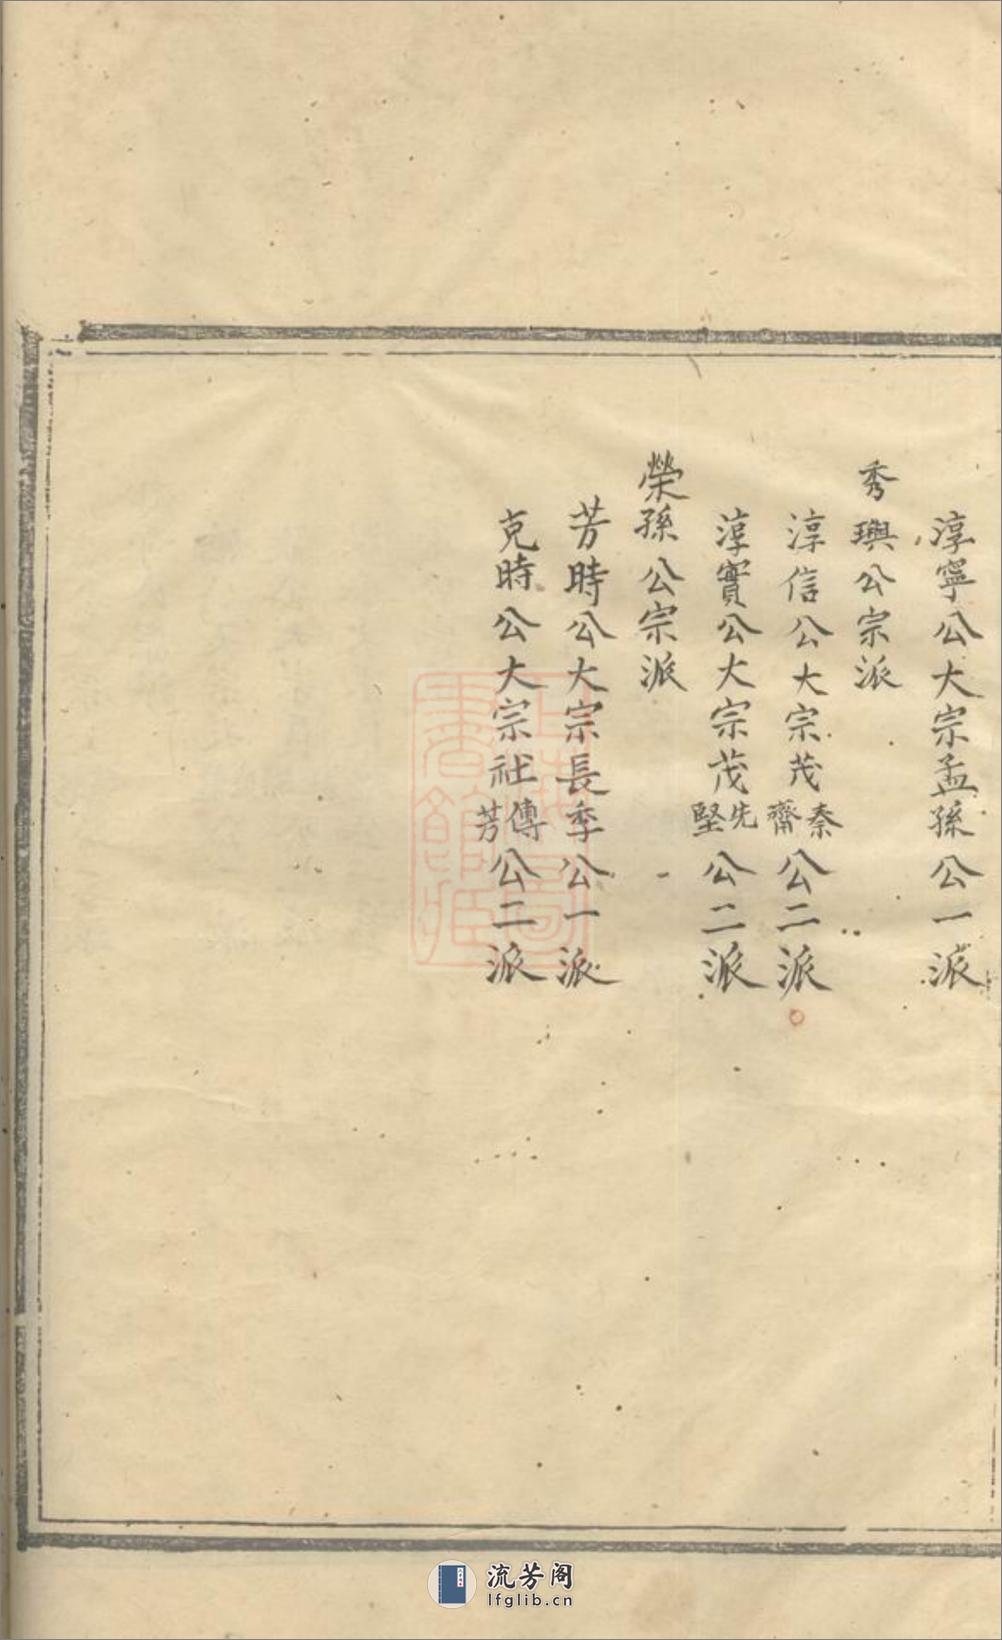 淳寧公大宗孟孫公一派
秀璵公宗派
淳信公大宗茂秦齋公二派
淳實公大宗茂先堅公二派
榮孫公宗派
芳時公大宗長季公一派
克時公大宗社傳芳公二派
流芳阁
lfglib.cn